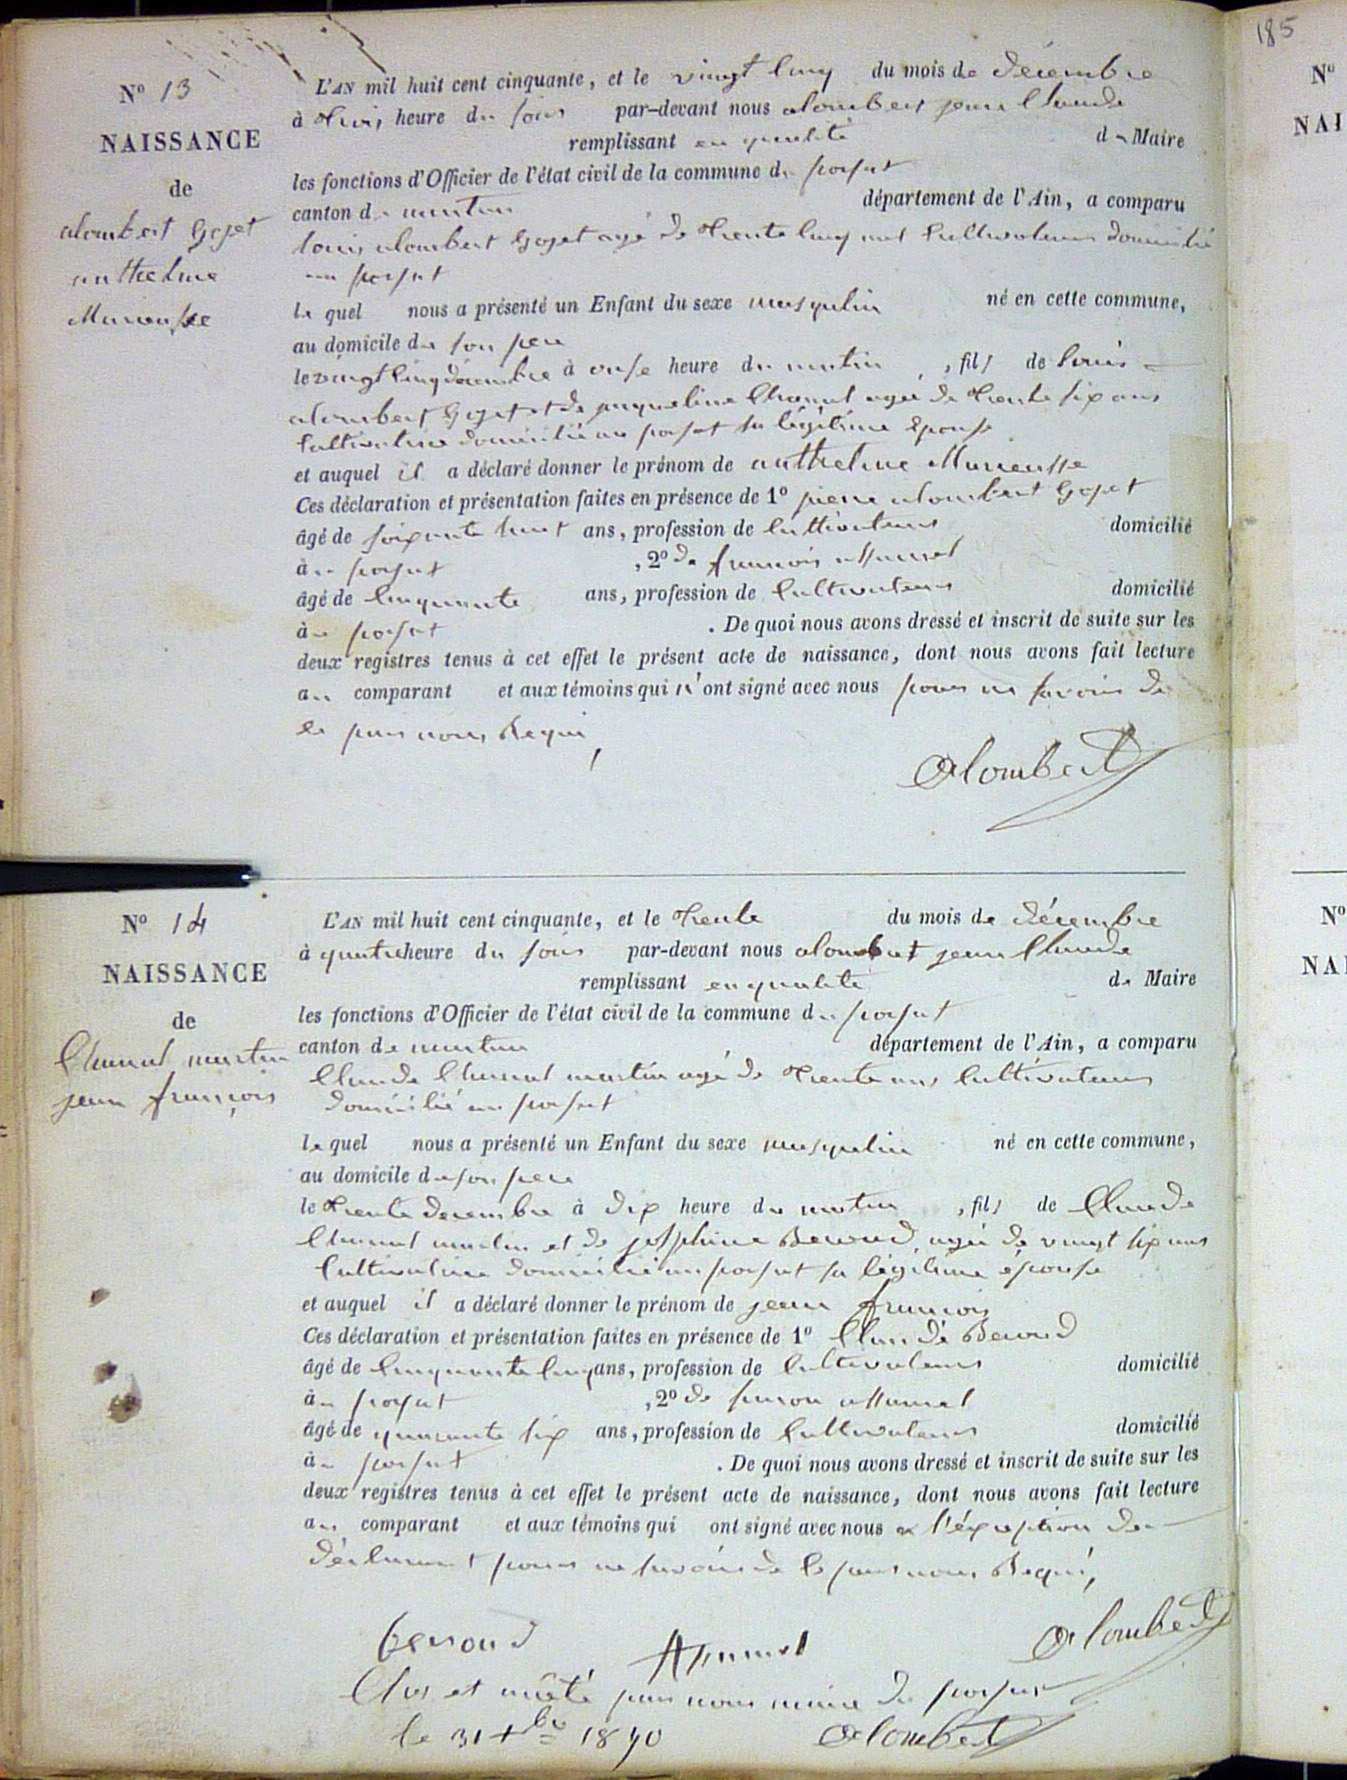 185
Nº 13
NAISSANCE
de
alombert Goget
anthelme
Marieusse
L'AN mil huit cent cinquante, et le vingt cinq du mois de décembre
à trois heure du soir par-devant nous alombert jean Claude
remplissant en qualité de Maire
les fonctions d'Officier de l'état civil de la commune du
canton de département de l'Ain, a comparu
louis alombert Goget agé de trente cinq ans Cultivateur domicilié
au
le quel nous a présenté un Enfant du sexe masqulin né en cette commune,
au domicile du son pere
le vingt cinq décembre à onse heure du matin, fils de louis
alombert Goget et de jaqueline Chanal agée de trente six ans
Cultivatrice domicilié au sa légitime Epouse
et auquel il a déclaré donner le prénom de anthelme Marieusse
Ces déclaration et présentation faites en présence de 1º pierre alombert Goget
âgé de soixante huit ans, profession de Cultivateur domicilié
au , 2º de françois
âgé de Cinquante ans, profession de Cultivateur domicilié
au . De quoi nous avons dressé et inscrit de suite sur les
deux registres tenus à cet effet le présent acte de naissance, dont nous avons fait lecture
au comparant et aux témoins qui n'ont signé avec nous pour ne savoir de
le par nous Requi,
Alombert
Nº 14
NAISSANCE
de
Chanal martin
jean françois
L'AN mil huit cent cinquante, et le trente du mois de décembre
à quatre heure du soir par-devant nous alombert jean Claude
remplissant en qualité de Maire
les fonctions d'Officier de l'état civil de la commune du
canton de département de l'Ain, a comparu
Claude Chanal martin agé de trente ans Cultivateur
domicilié au
le quel nous a présenté un Enfant du sexe masqulin né en cette commune,
au domicile de son pere
le trente decembre à dix heure du matin, fils de Claude
Chanal martin et de josephine Beroud agée de vingt six ans
Cultivatrice domicilié au sa légitime épouse
et auquel il a déclaré donner le prénom de jean françois
Ces déclaration et présentation faites en présence de 1º Claude Beroud
âgé de Cinquante Cinq ans, profession de Cultivateur domicilié
au , 2º de
âgé de quarante six ans, profession de Cultivateur domicilié
au . De quoi nous avons dressé et inscrit de suite sur les
deux registres tenus à cet effet le présent acte de naissance, dont nous avons fait lecture
au comparant et aux témoins qui ont signé avec nous a l'éxception du
déclarant pour ne savoir de le par nous Requi,
Beroud
Alombert
Clos et arêté par nous maire du
le 31 Xbre 1850 Alombert
Nº
NAI
Nº
NAI